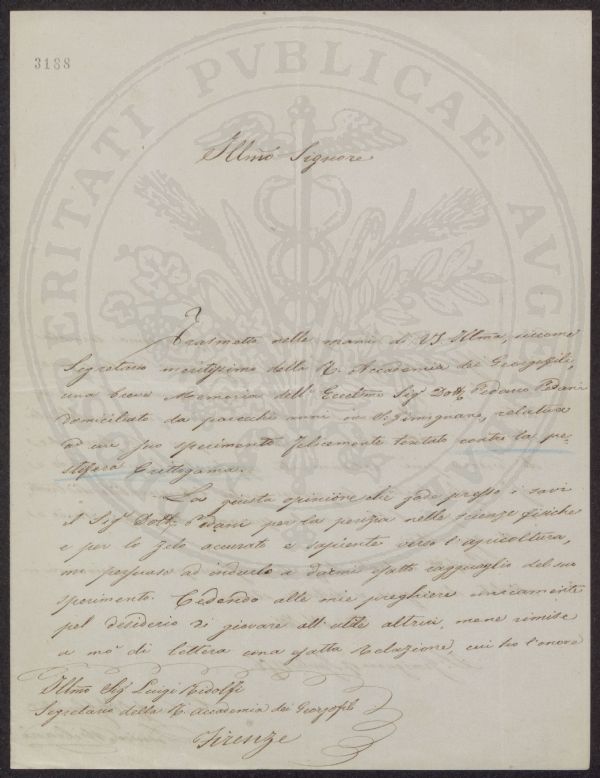 3188
PVBLICAE
Illmo Signore
Trasmetto nelle mani di VS Illma, siccome
Segretario meritissimo della R. Accademia dei Georgofili,
una breve Memoria dell' Eccelmo Sigr Dott.
domiciliato da parecchi anni in S. Gimignano, relativa
ad un suo sperimento felicemente tentato contro la pe-
stifera Crittogama.
La giusta opinione che gode presso i savi
il Sigr Dott. Pedani per la perizia nelle scienze fisiche
e per lo zelo accurato e sapiente verso l'agricoltura,
mi persuase ad indurlo a darmi esatto ragguaglio del suo
sperimento. Cedendo alle mie preghiere unicamente
pel desiderio di giovare all' utile altrui, me ne rimise
a mo' di lettera una esatta Relazione, cui ho l'onore
Illmo Sigr Luigi Ridolfi
Segretario della R. Accademia dei Georgofili
Firenze